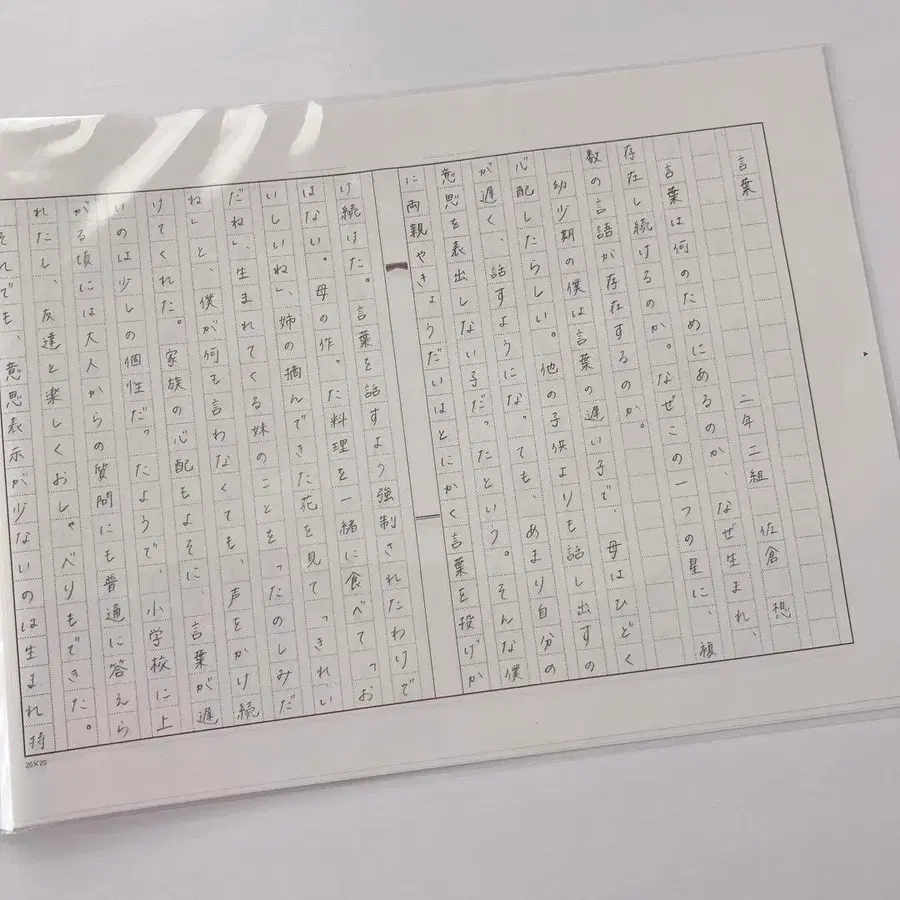 言葉
二年二組 佐倉 想
言葉は何のためにあるのか、なぜ生まれ、
存在し続けるのか。なぜこの一つの星に、複
数の言語が存在するのか。
幼少期の僕は言葉の遅い子で、母はひどく
心配したらしい。他の子供よりも話し出すの
が遅く、話すようになっても、あまり自分の
意思を表出しない子だったという。そんな僕
に両親やきょうだいはとにかく言葉を投げか
け続けた。言葉を話すよう強制されたわけで
はない。母の作った料理を一緒に食べて「お
いしいね」、姉の摘んできた花を見て「きれい
だね」、生まれてくる妹のことを「たのしみだ
ね」と、僕が何も言わなくても、声をかけ続
けてくれた。家族の心配もよそに、言葉が遅
いのは少しの個性だったようで、小学校に上
がる頃には大人からの質問にも普通に答えら
れたし、友達と楽しくおしゃべりもできた。
それでも、意思表示が少ないのは生まれ持
20×20